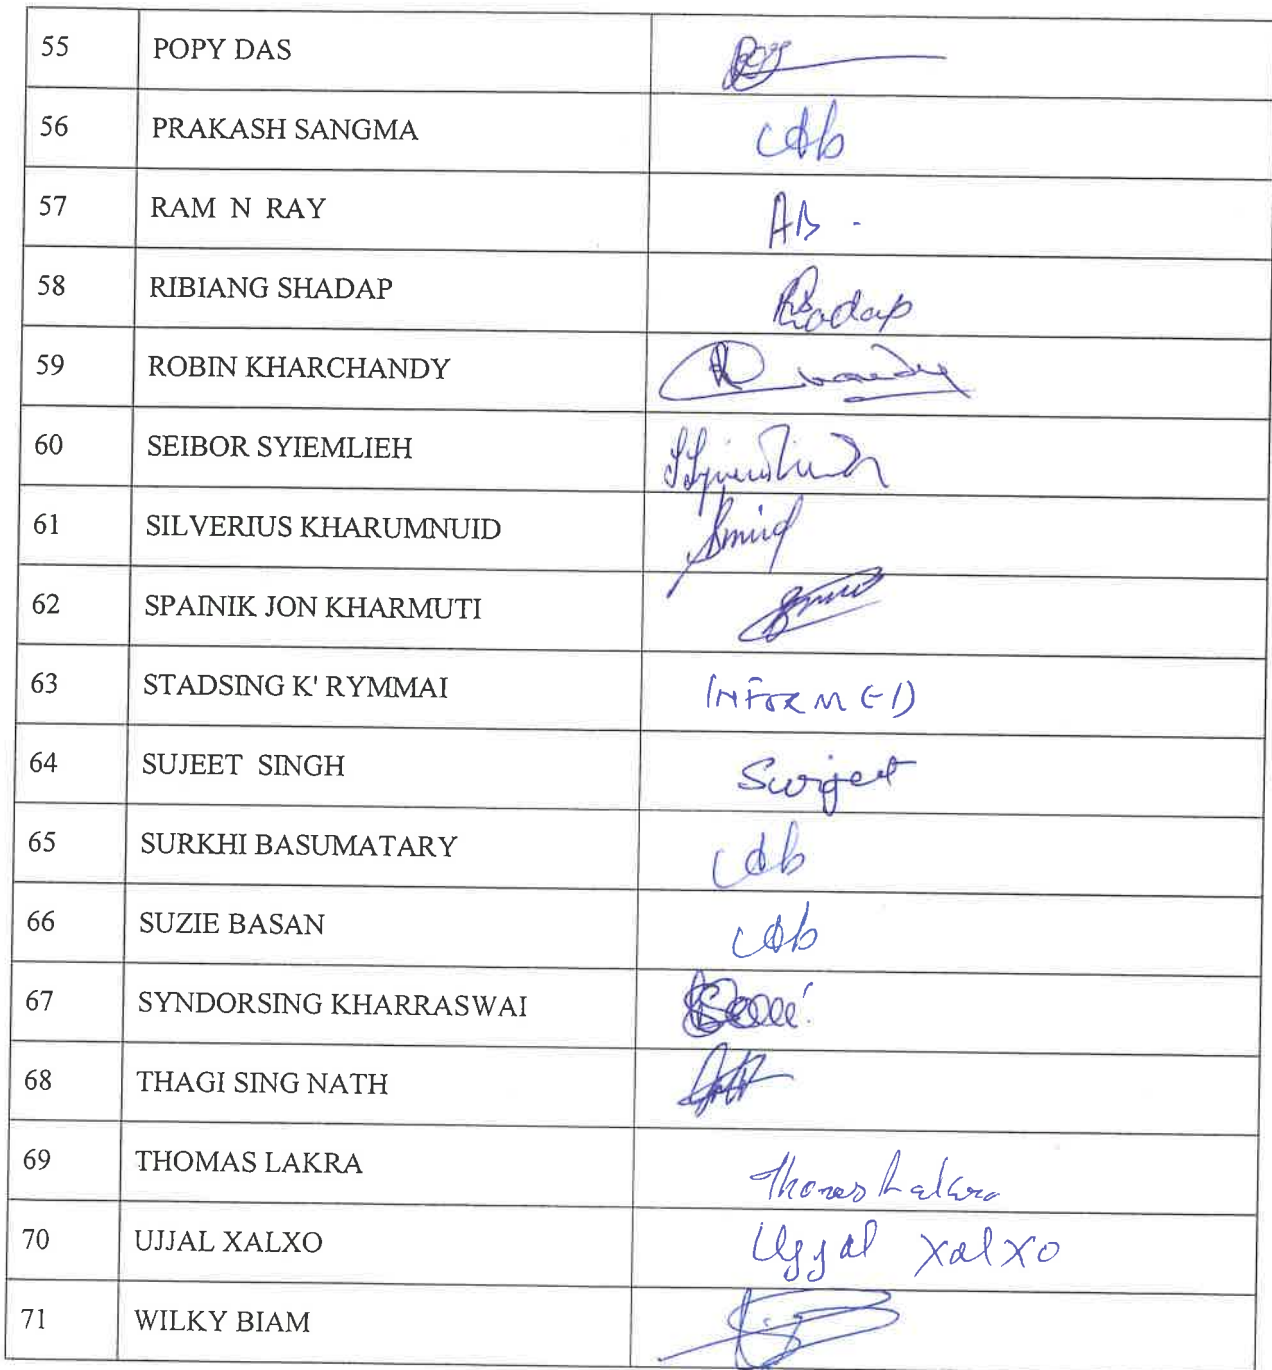 55 POPY DAS
56 PRAKASH SANGMA Ab
57 RAM N RAY AB -
58 RIBIANG SHADAP
59 ROBIN KHARCHANDY
60 SEIBOR SYIEMLIEH
61 SILVERIUS KHARUMNUID
62 SPAINIK JON KHARMUTI
63 STADSING K' RYMMAI INFORMED
64 SUJEET SINGH Surjeet
65 SURKHI BASUMATARY Ab
66 SUZIE BASAN Ab
67 SYNDORSING KHARRASWAI
68 THAGI SING NATH
69 THOMAS LAKRA Thomas Lakra
70 UJJAL XALXO Ujjal Xalxo
71 WILKY BIAM